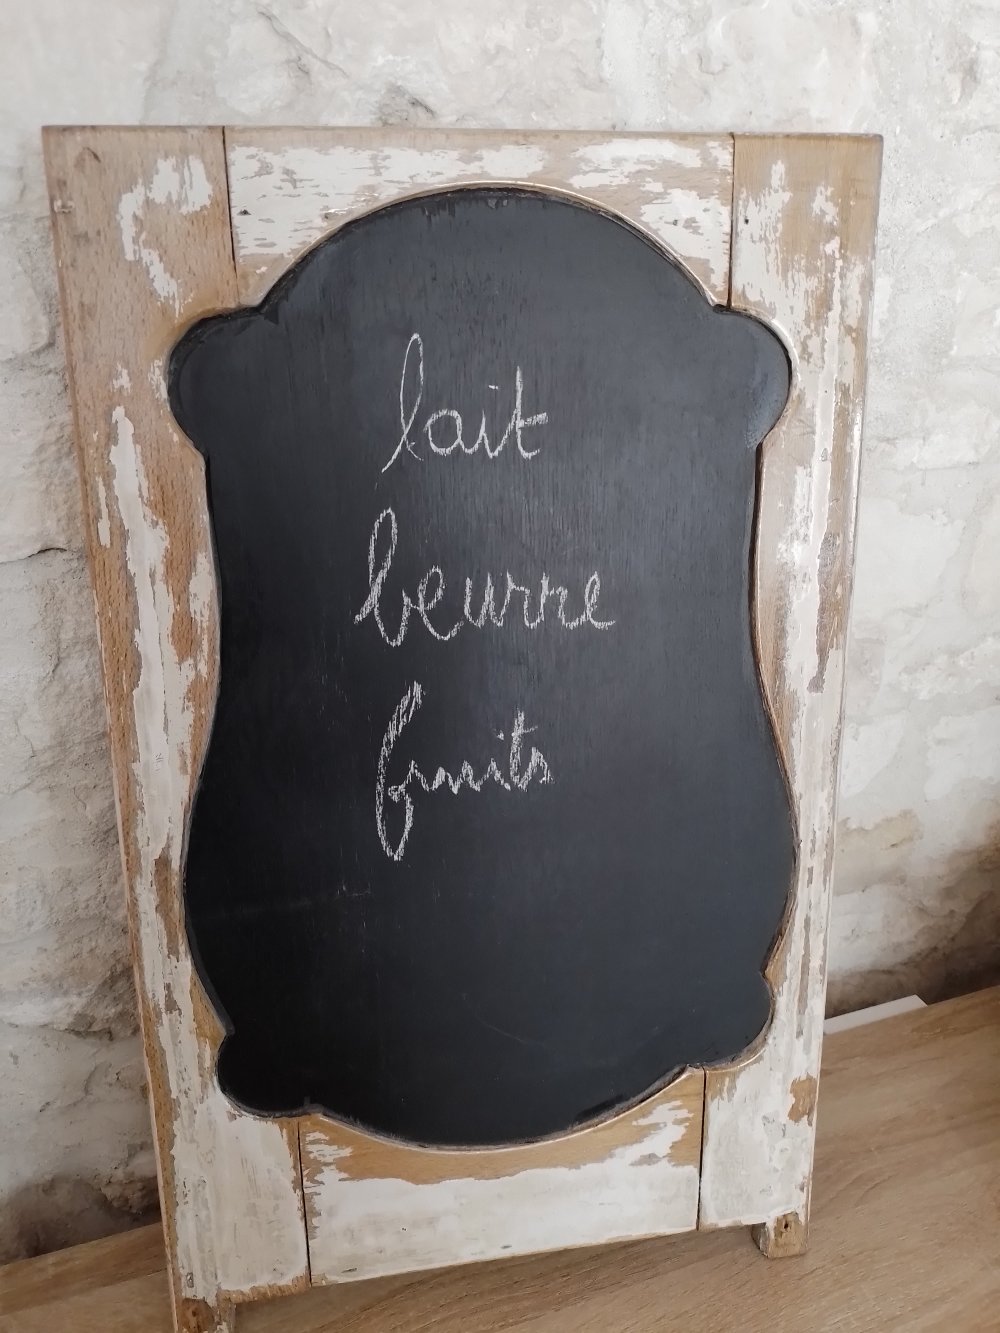 lait
beurre
fruits